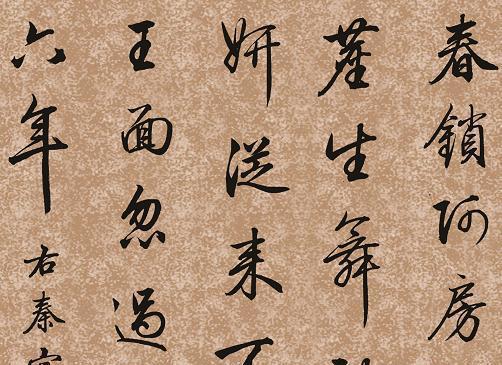 春鎖阿房
塵生舞
妍從来
王面忽過
六年右秦